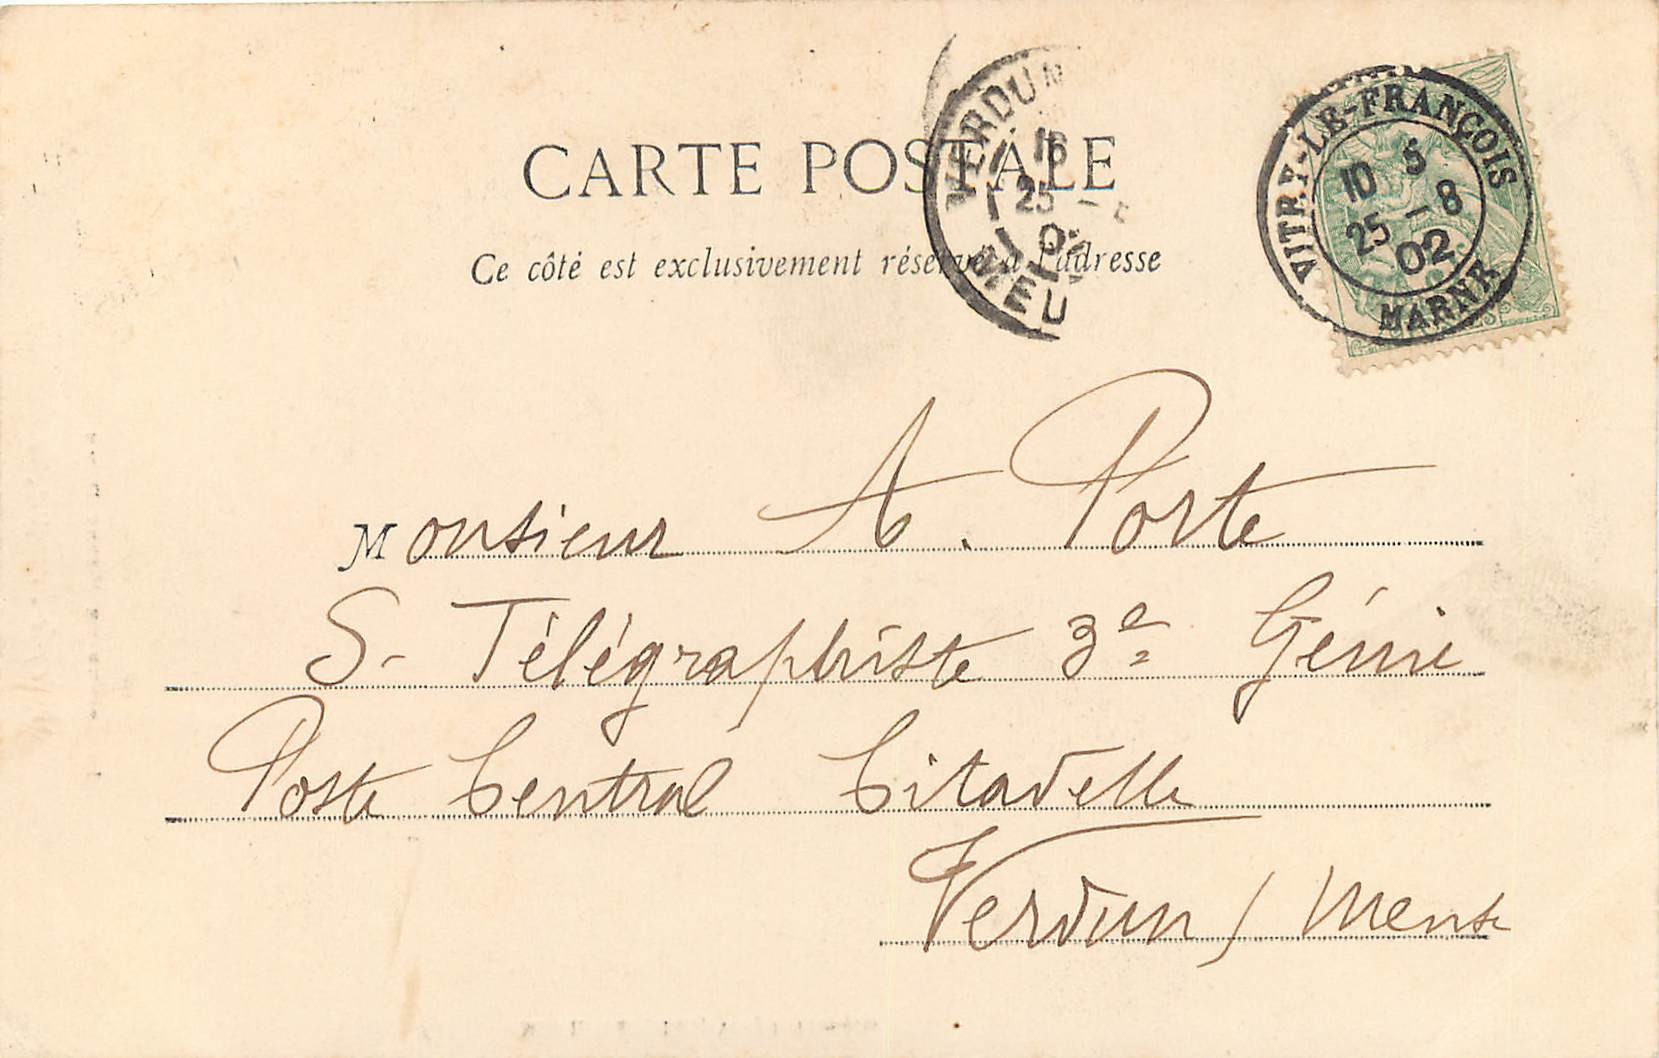 CARTE POSTALE
Ce côté est exclusivement réservé à l'adresse
VERDUN
18
25
02
MEU
VITRY-LE-FRANÇOIS
10 5
25 - 8
02
MARNE
Monsieur A. Porte
S- Télégraphiste 3e Génie
Poste Central Citadelle
Verdun / Meuse